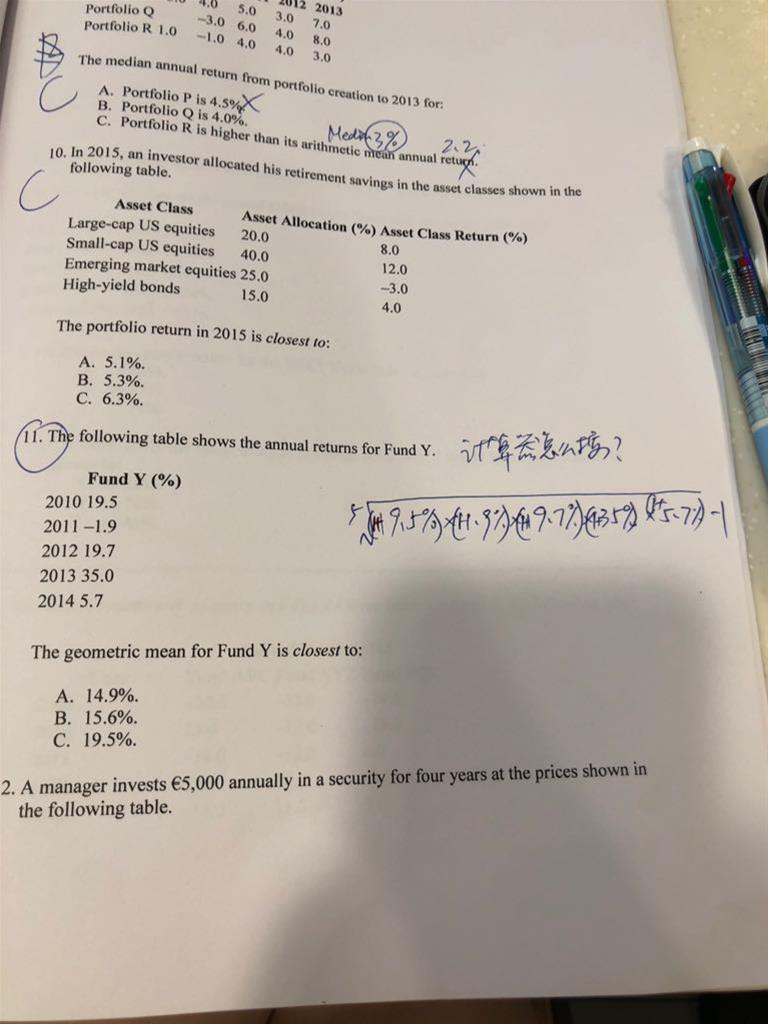 4.0 5.0 2012 2013
Portfolio Q -3.0 6.0 3.0 7.0
Portfolio R 1.0 -1.0 4.0 4.0 8.0
4.0 3.0
The median annual return from portfolio creation to 2013 for:
C
A. Portfolio P is 4.5%.
B. Portfolio Q is 4.0%.
Median 3% 2.2
C. Portfolio R is higher than its arithmetic mean annual return.
10. In 2015, an investor allocated his retirement savings in the asset classes shown in the
following table.
C
Asset Class Asset Allocation (%) Asset Class Return (%)
Large-cap US equities 20.0 8.0
Small-cap US equities 40.0 12.0
Emerging market equities 25.0 -3.0
High-yield bonds 15.0 4.0
The portfolio return in 2015 is closest to:
A. 5.1%.
B. 5.3%.
C. 6.3%.
11. The following table shows the annual returns for Fund Y. 计算器怎么按?
Fund Y (%)
2010 19.5
2011 –1.9
2012 19.7
2013 35.0
2014 5.7
The geometric mean for Fund Y is closest to:
A. 14.9%.
B. 15.6%.
C. 19.5%.
2. A manager invests €5,000 annually in a security for four years at the prices shown in
the following table.